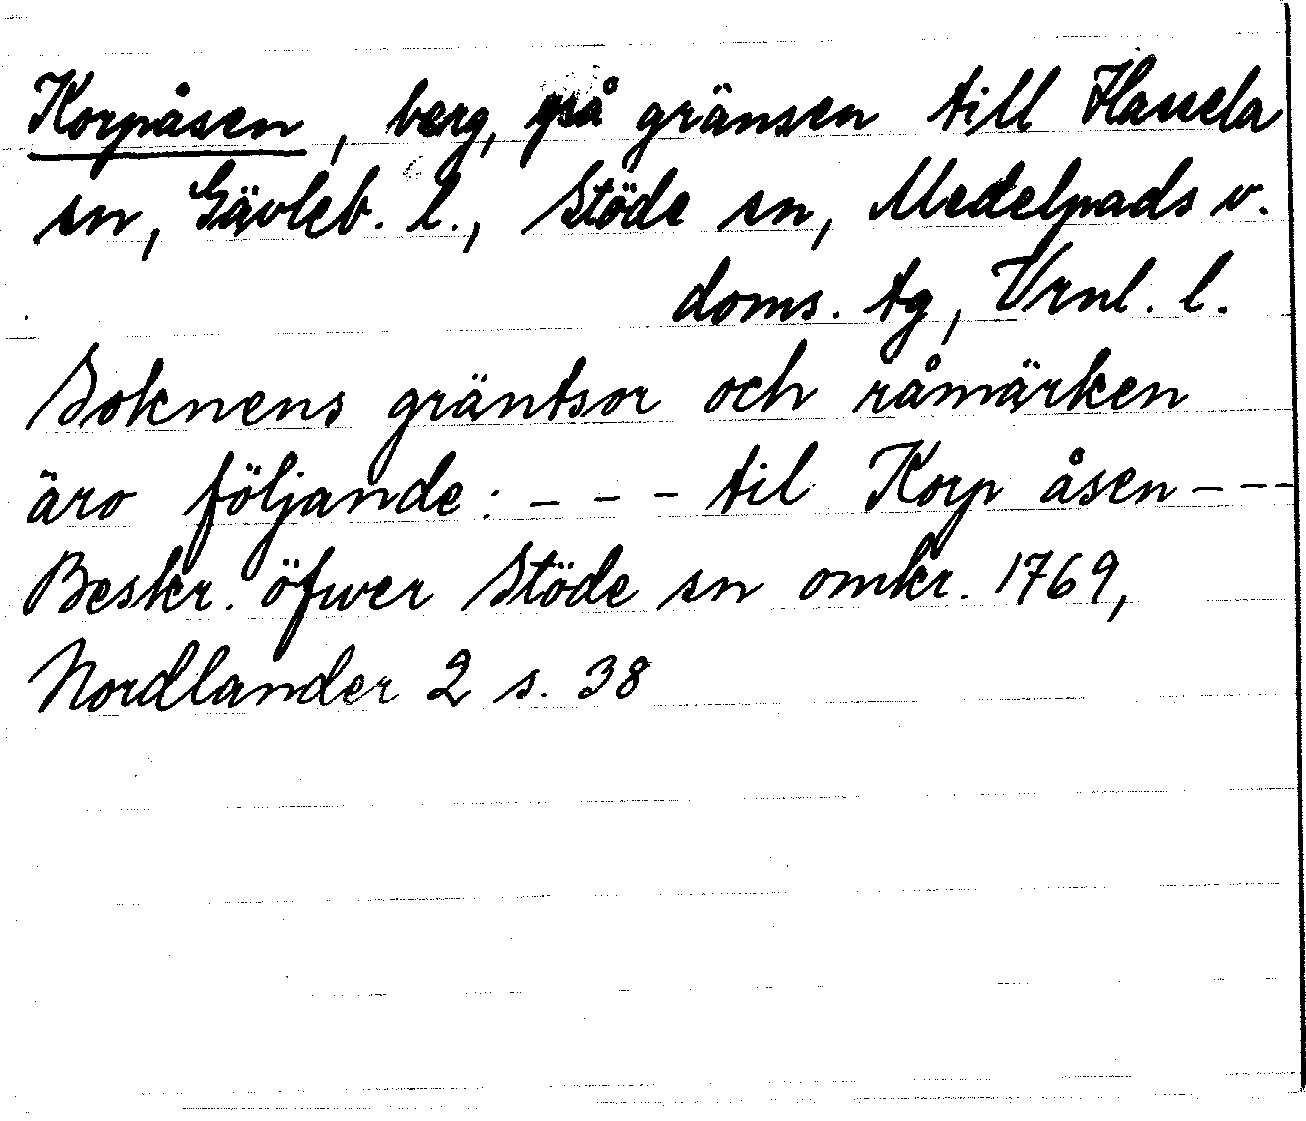 Korpåsen, berg, på gränsen till Hassela
sn, Gävleb. l., Stöde sn, Medelpads v.
doms. tg, Vrnl. l.
Soknens gräntsor och råmärken
äro följande: - - - til Korp åsen - - -
Beskr. öfwer Stöde sn omkr. 1769,
Nordlander 2 s. 38